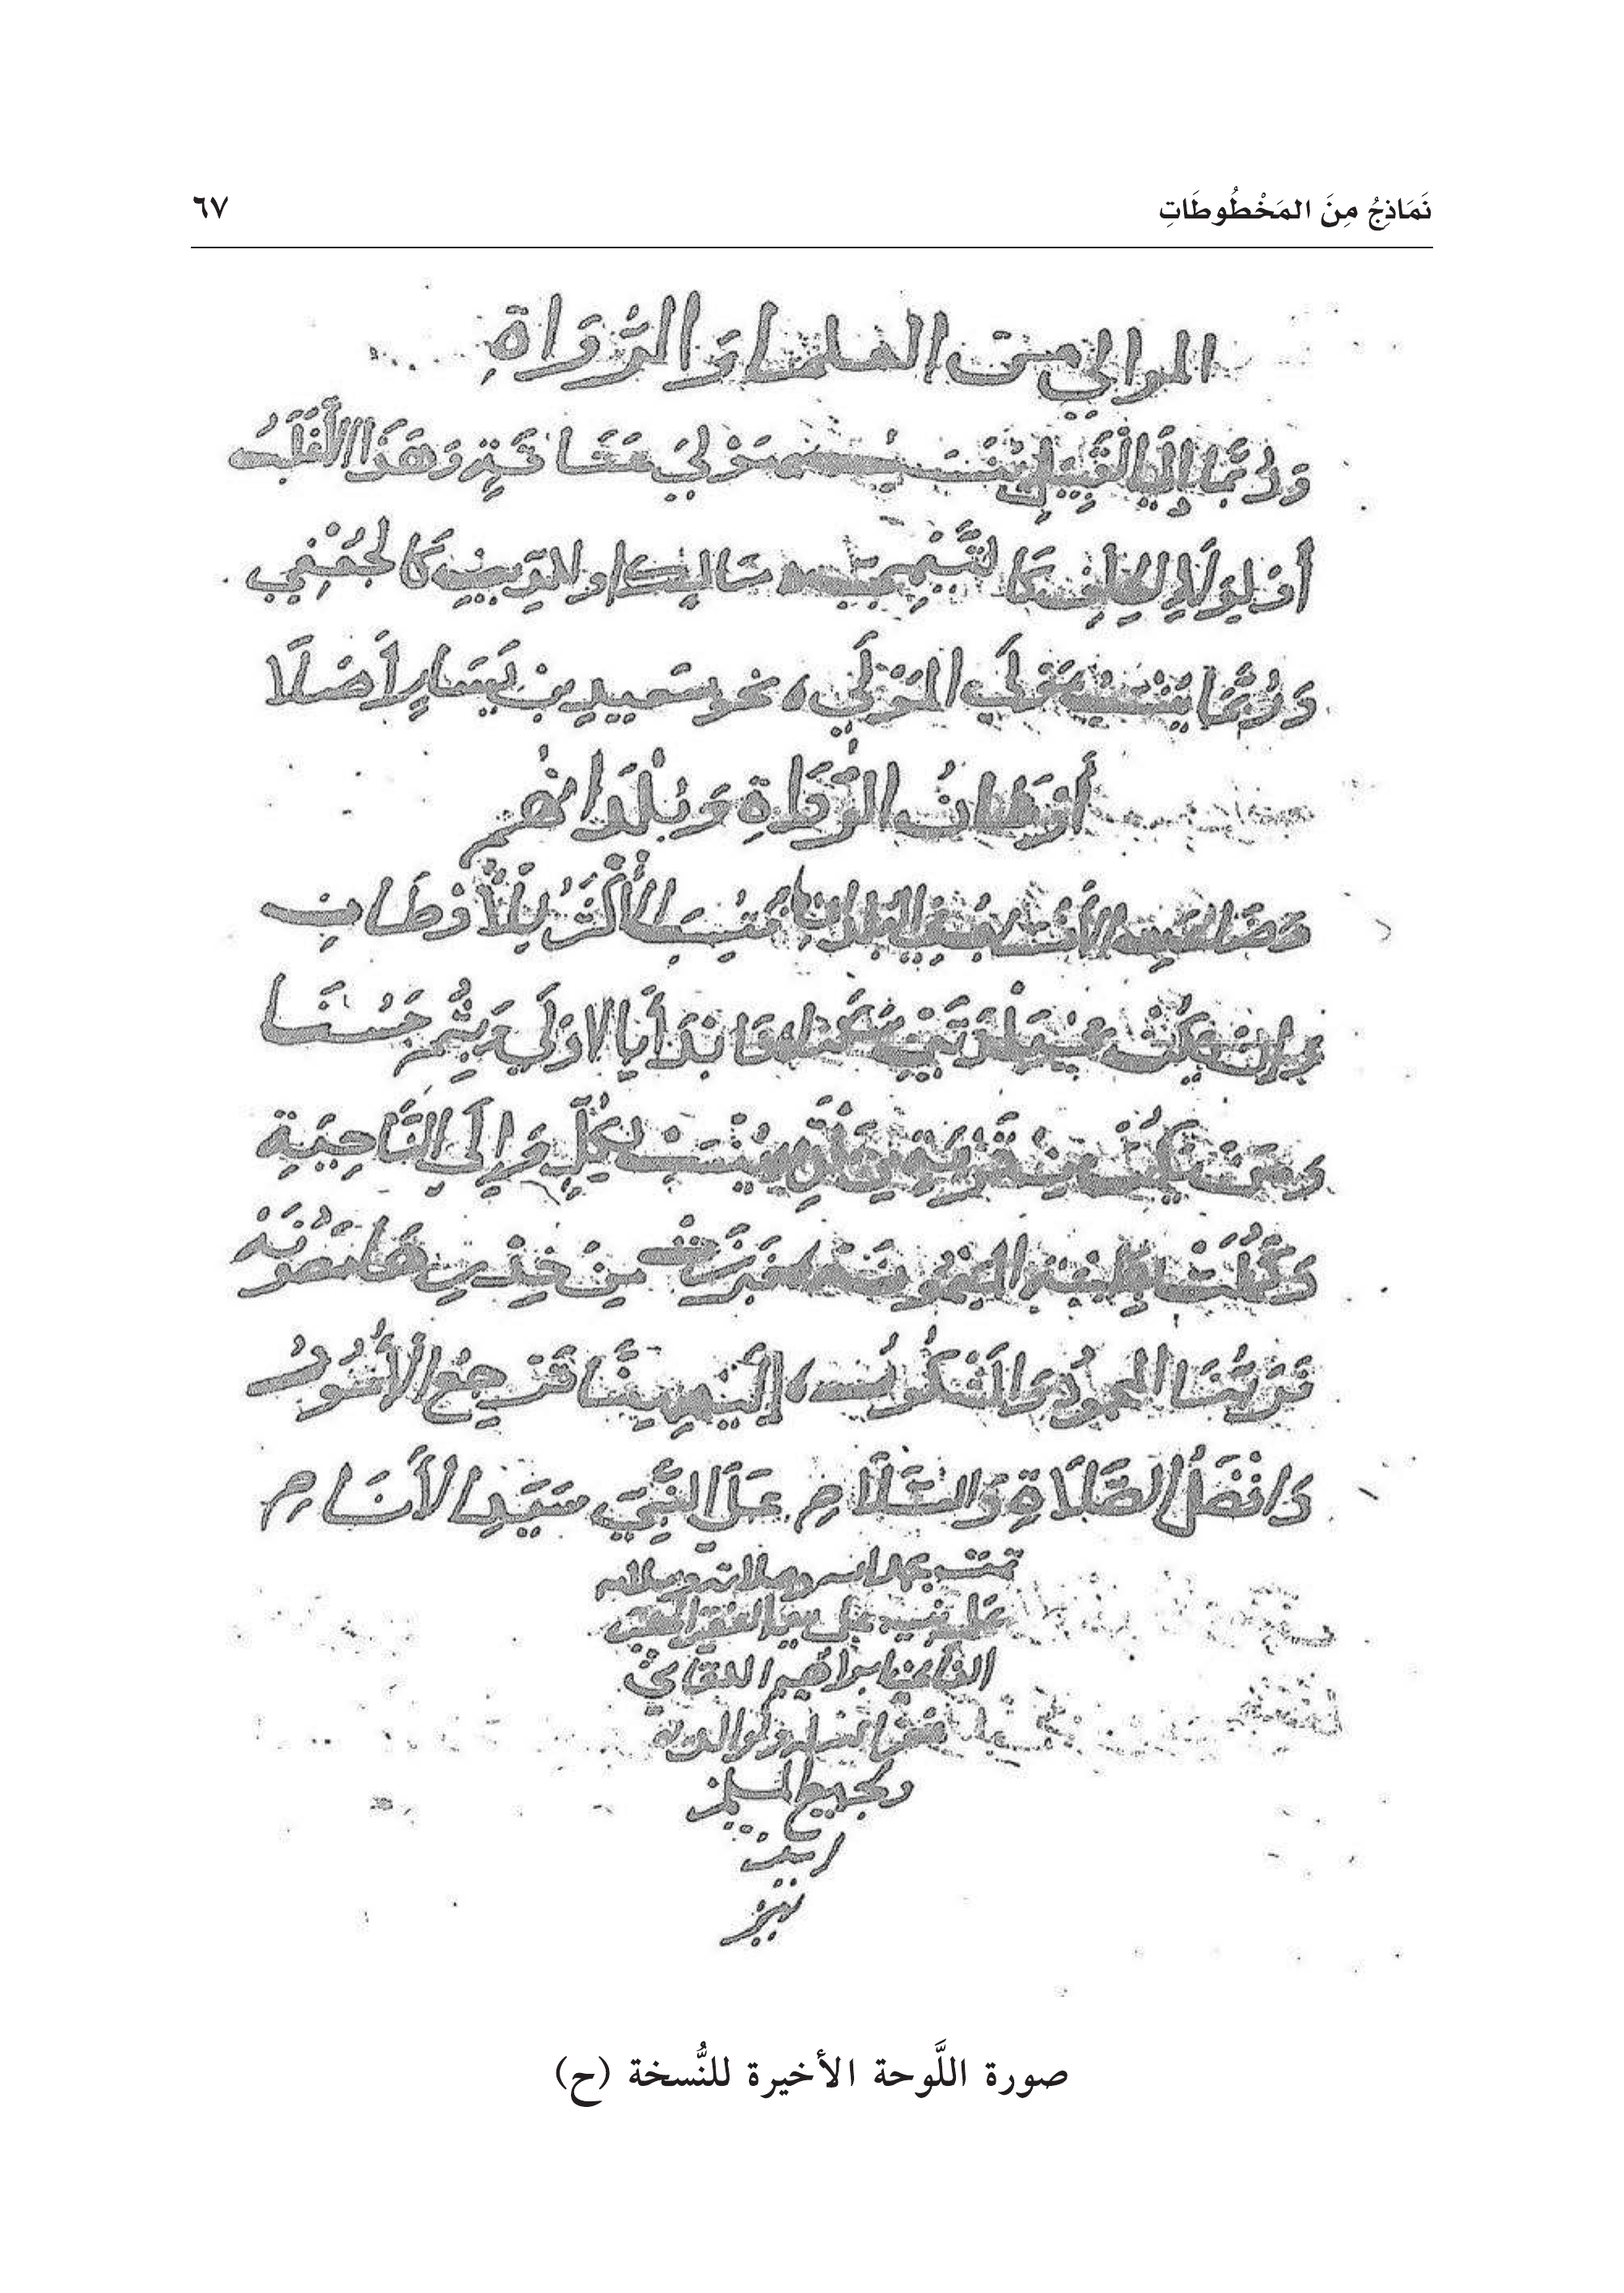 نَمَاذِجُ مِنَ المَخْطُوطَاتِ
٦٧
الموالي من العلما وَالرُّوَاةِ
وَرُبَّمَا إِلَى القَبِيلِ يُنْسَبُ مَوْلَى عَتَاقَةٍ وَهَذَا الأَغْلَبُ
أَوْ لِوَلَاءِ الحِلْفِ كَالتَّيْمِيِّ مَالِكٍ اوِ للدِّينِ كَالجُعْفِي
وَرُبَّمَا يُنْسَبُ مَوْلَى المَوْلَى، نحو سَعِيدِ بنِ يَسَارٍ أَصْلَا
أَوْطَانُ الرُّوَاةِ وَبُلْدَانُهُم
وَضَاعَتِ الأَنْسَابُ في البُلْدَانِ فَنُسِبَ الأَكْثَرُ لِلْأَوْطَانِ
وَإِن يَكُنْ في بَلْدَتَيْنِ سَكَنَا فَابْدَأْ بِالاولَى وَبِثُمَّ حَسُنَا
وَمَنْ يَكُنْ مِنْ قَرْيَةٍ مِنْ بَلْدَةٍ يُنْسَبْ لِكُلٍّ وَإِلَى النَّاحِيَةِ
وَكَمُلَتْ بِطَيْبَةَ المَيْمُونَهْ فَبَرَزَتْ مِنْ خِدْرِهَا مَصُونَهْ
فَرَبُّنَا المحمُودُ وَالمَشْكُورُ، إِلَيْهِ مِنَّا تَرْجِعُ الأُمُورُ
وَافضَلُ الصَّلَاةِ وَالسَّلَامِ عَلَى النَّبِيِّ سَيِّدِ الأَنَامِ
تمت بحمد الله وصلاته وسلامه
على نبيه على يد الفقير
الفاني ابراهيم اللقاني
غفر الله له ولوالديه
ولجميع المسلمين
امين
صورة اللَّوحة الأخيرة للنُّسخة (ح)